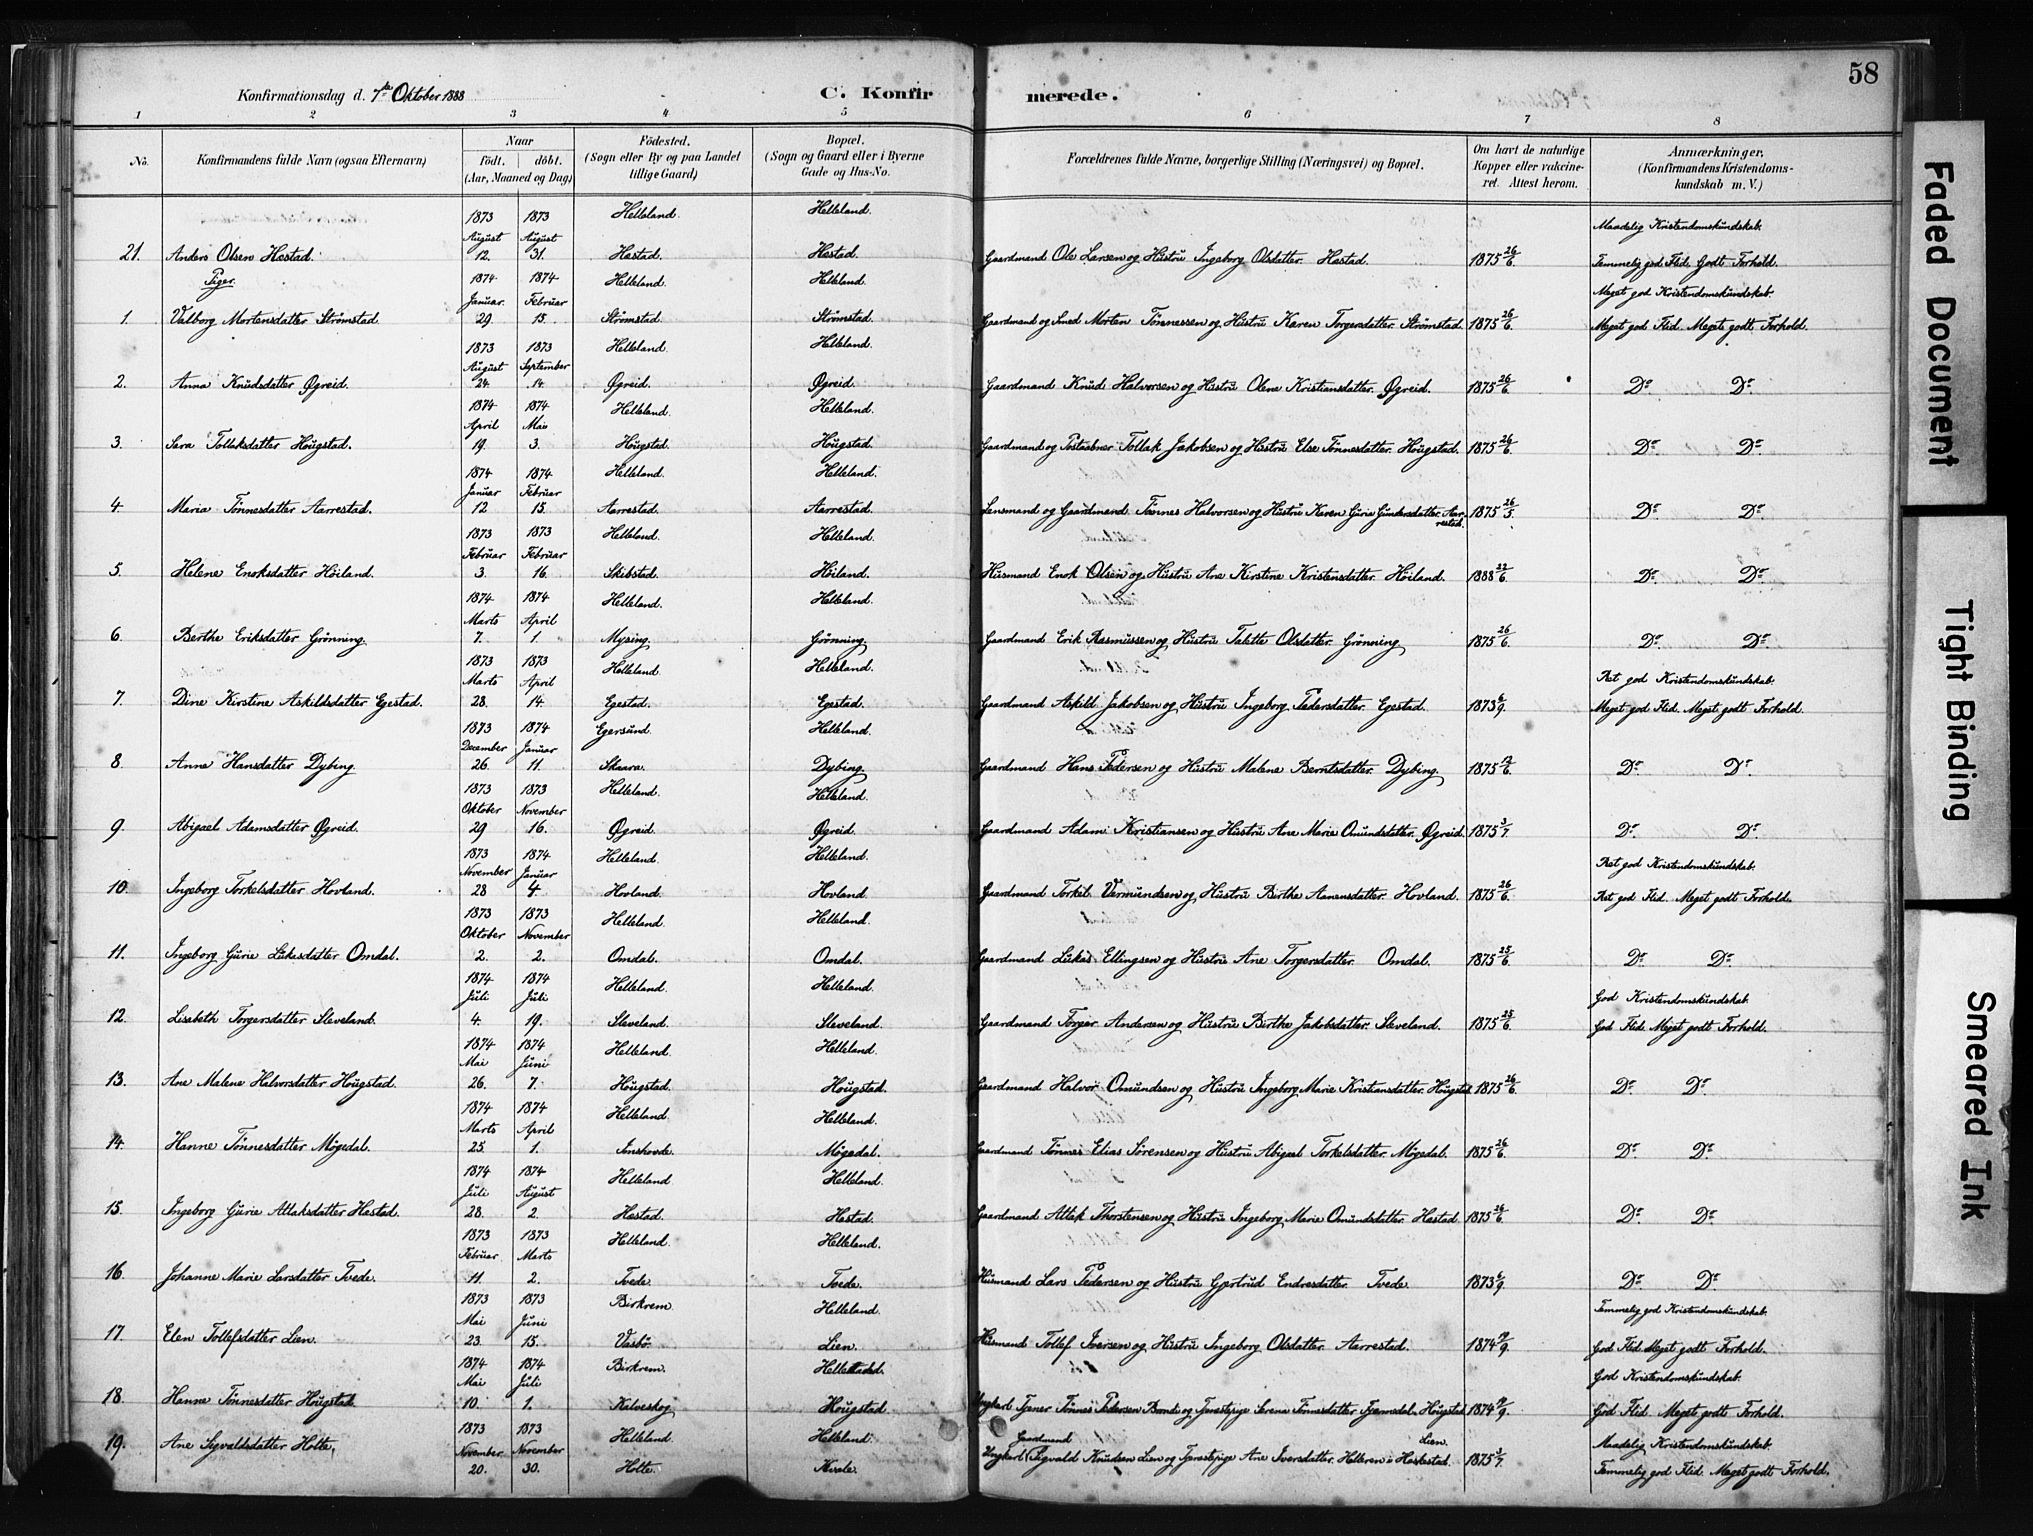 58
Konfirmationsdag d. 7de Oktober 1888
C. Konfirmerede.
1 2 3 4 5 6 7 8
No.
Konfirmandens fulde Navn (ogsaa Efternavn)
Naar
født. døbt.
(Aar, Maaned og Dag)
Fødested.
(Sogn eller By og paa Landet
tillige Gaard)
Bopæl.
(Sogn og Gaard eller i Byerne
Gade og Hus-No.
Forældrenes fulde Navne, borgerlige Stilling (Næringsvei) og Bopæl.
Om havt de naturlige
Kopper eller vakcine-
ret. Attest herom.
Anmærkninger.
(Konfirmandens Kristendoms-
kundskab m. V.)
1873 1873 Helleland. Helleland. Maadelig Kristendomskundskab.
August August
21. Anders Olsen Hestad. 12. 31. Hestad. Hestad. Gaardmand Ole Larsen og Hustru Ingeborg Olsdatter. Hestad. 1875 26/6. Temmelig god Flid. Godt Forhold.
Piger. 1874 1874 Helleland. Helleland. Meget god Kristendomskundskab.
Januar. Februar
1. Valborg Mortensdatter Strømstad. 29. 15. Strømstad. Strømstad. Gaardmand og Smed Morten Tønnessen og Hustru Karen Torgersdatter. Strømstad. 1875 26/6. Meget god Flid. Meget godt Forhold.
1873 1873 Helleland. Helleland.
August September
2. Anna Knudsdatter Øgreid. 24. 14. Øgreid. Øgreid. Gaardmand Knud Halvorsen og Hustru Olene Kristiansdatter. Øgreid. 1875 26/6. Do. Do.
1874 1874 Helleland. Helleland.
April Mai
3. Sara Tollaksdatter Hougstad. 19. 3. Hougstad. Hougstad. Gaardmand og Postaabner Tollak Jakobsen og Hustru Else Tønnesdatter. Hougstad. 1875 26/6. Do. Do.
1874 1874 Helleland. Helleland.
Januar Februar
4. Maria Tønnesdatter Aarrestad. 12 15. Aarrestad. Aarrestad. Lensmand og Gaardmand Tønnes Halvorsen og Hustru Karen Gurie Gundersdatter. Aar-
restad. 1875 26/5. Do. Do.
1873 1873 Helleland. Helleland.
Februar Februar
5. Helene Enoksdatter Høiland. 3. 16. Skibstad. Høiland. Husmand Enok Olsen og Hustru Ane Kirstine Kristensdatter. Høiland. 1888 22/6. Do. Do.
1874 1874 Helleland. Helleland.
Marts April
6. Berthe Eriksdatter Grønning. 7. 1. Mysing. Grønning. Gaardmand Erik Rasmussen og Hustru Talette Olsdatter. Grønning 1875 26/6. Do. Do.
1873 1873 Helleland. Helleland. Ret god Kristendomskundskab.
Marts April
7. Dine Kirstine Askildsdatter Egestad. 28. 14. Egestad. Egestad. Gaardmand Askild Jakobsen og Hustru Ingeborg Pedersdatter. Egestad. 1873 6/9. Meget god Flid. Meget godt Forhold.
1873 1874 Egersund. Helleland.
December Januar
8. Anne Hansdatter Dybing. 26. 11. Skaara. Dybing. Gaardmand Hans Pedersen og Hustru Malene Berntsdatter. Dybing. 1875 Do. Do.
1873 1873 Helleland. Helleland.
Oktober November
9. Abigael Adamsdatter Øgreid. 29 16. Øgreid. Øgreid. Gaardmand Adam Kristiansen og Hustru Ane Marie Omundsdatter. Øgreid. 1875 3/7. Do. Do.
1873 1874 Helleland. Helleland. Ret god Kristendomskundskab.
November Januar
10. Ingeborg Torkelsdatter Hovland. 28 4. Hovland. Hovland. Gaardmand Torkel Vermundsen og Hustru Birthe Aanensdatter. Hovland. 1875 26/6. Ret god Flid. Meget godt Forhold.
1873 1873 Helleland. Helleland.
Oktober November
11. Ingeborg Gurie Lukasdatter Omdal. 2. 2. Omdal. Omdal. Gaardmand Lukas Ellingsen og Hustru Ane Torgersdatter. Omdal. 1875 25/6. Do. Do.
1874 1874 Helleland. Helleland. God Kristendomskundskab.
Juli Juli
12. Lisabeth Torgersdatter Sleveland. 4. 19. Sleveland. Sleveland. Gaardmand Torger Andersen og Hustru Birthe Jakobsdatter. Sleveland. 1875 25/6. God Flid. Meget godt Forhold.
1874 1874 Helleland. Helleland.
Mai Juni
13. Ane Malene Halvorsdatter Hougstad. 26. 7. Hougstad. Hougstad. Gaardmand Halvor Omundsen og Hustru Ingeborg Marie Kristiansdatter. Hougstad. 1875 26/6. Do. Do.
1874 1874 Helleland. Helleland.
Marts April
14. Hanne Tønnesdatter Møgedal. 25. 1. Møgedal. Gaardmand Tønnes Elias Sørensen og Hustru Abigael Torkelsdatter. Møgedal. 1875 26/6. Do. Do.
1874 1874 Helleland. Helleland.
Juli August
15. Ingeborg Gurie Attaksdatter Hestad. 28. 2. Hestad. Hestad. Gaardmand Attak Thorstensen og Hustru Ingeborg Marie Omundsdatter. Hestad. 1875 26/6. Do. Do.
1873 1873 Helleland. Helleland.
Februar Marts
16. Johanne Marie Larsdatter Tvede. 11. 2. Tvede. Tvede. Husmand Lars Pedersen og Hustru Gjertrud Endresdatter. Tvede. 1873 6/9. Do. Do.
1873 1873 Birkrem. Helleland. Temmelig god Kristendomskundskab.
Mai Juni
17. Elen Tollefsdatter Lien. 23. 15. Vasbø. Lien. Husmand Tollef Iversen og Hustru Ingeborg Olsdatter. Aarrestad. 1874 God Flid. Meget godt Forhold.
1874 1874 Birkrem. Helleland. God Kristendomskundskab.
Mai Juli
18. Hanne Tønnesdatter Hougstad 10. 1. Kalveskog Hougstad. Ungkarl Tjener Tønnes Pedersen Brondi og Tjenestepige Serena Tønnesdatter Fjermedal. Hougstad. 1874 God Flid. Meget godt Forhold.
1873 1873 Helleland. Helleland. Gaardmand Lien. Maadelig Kristendomskundskab.
November November
19. Ane Sigvaldsdatter Holte, 20. 30. Holte. Kvale. Ungkarl Sigvald Knudsen Lien og Tjenestepige Ane Iversdatter. Helleren i Heskestad. 1875 3/7. Temmelig god Flid. Meget godt Forhold.
Faded Document
Tight Binding
Smeared Ink